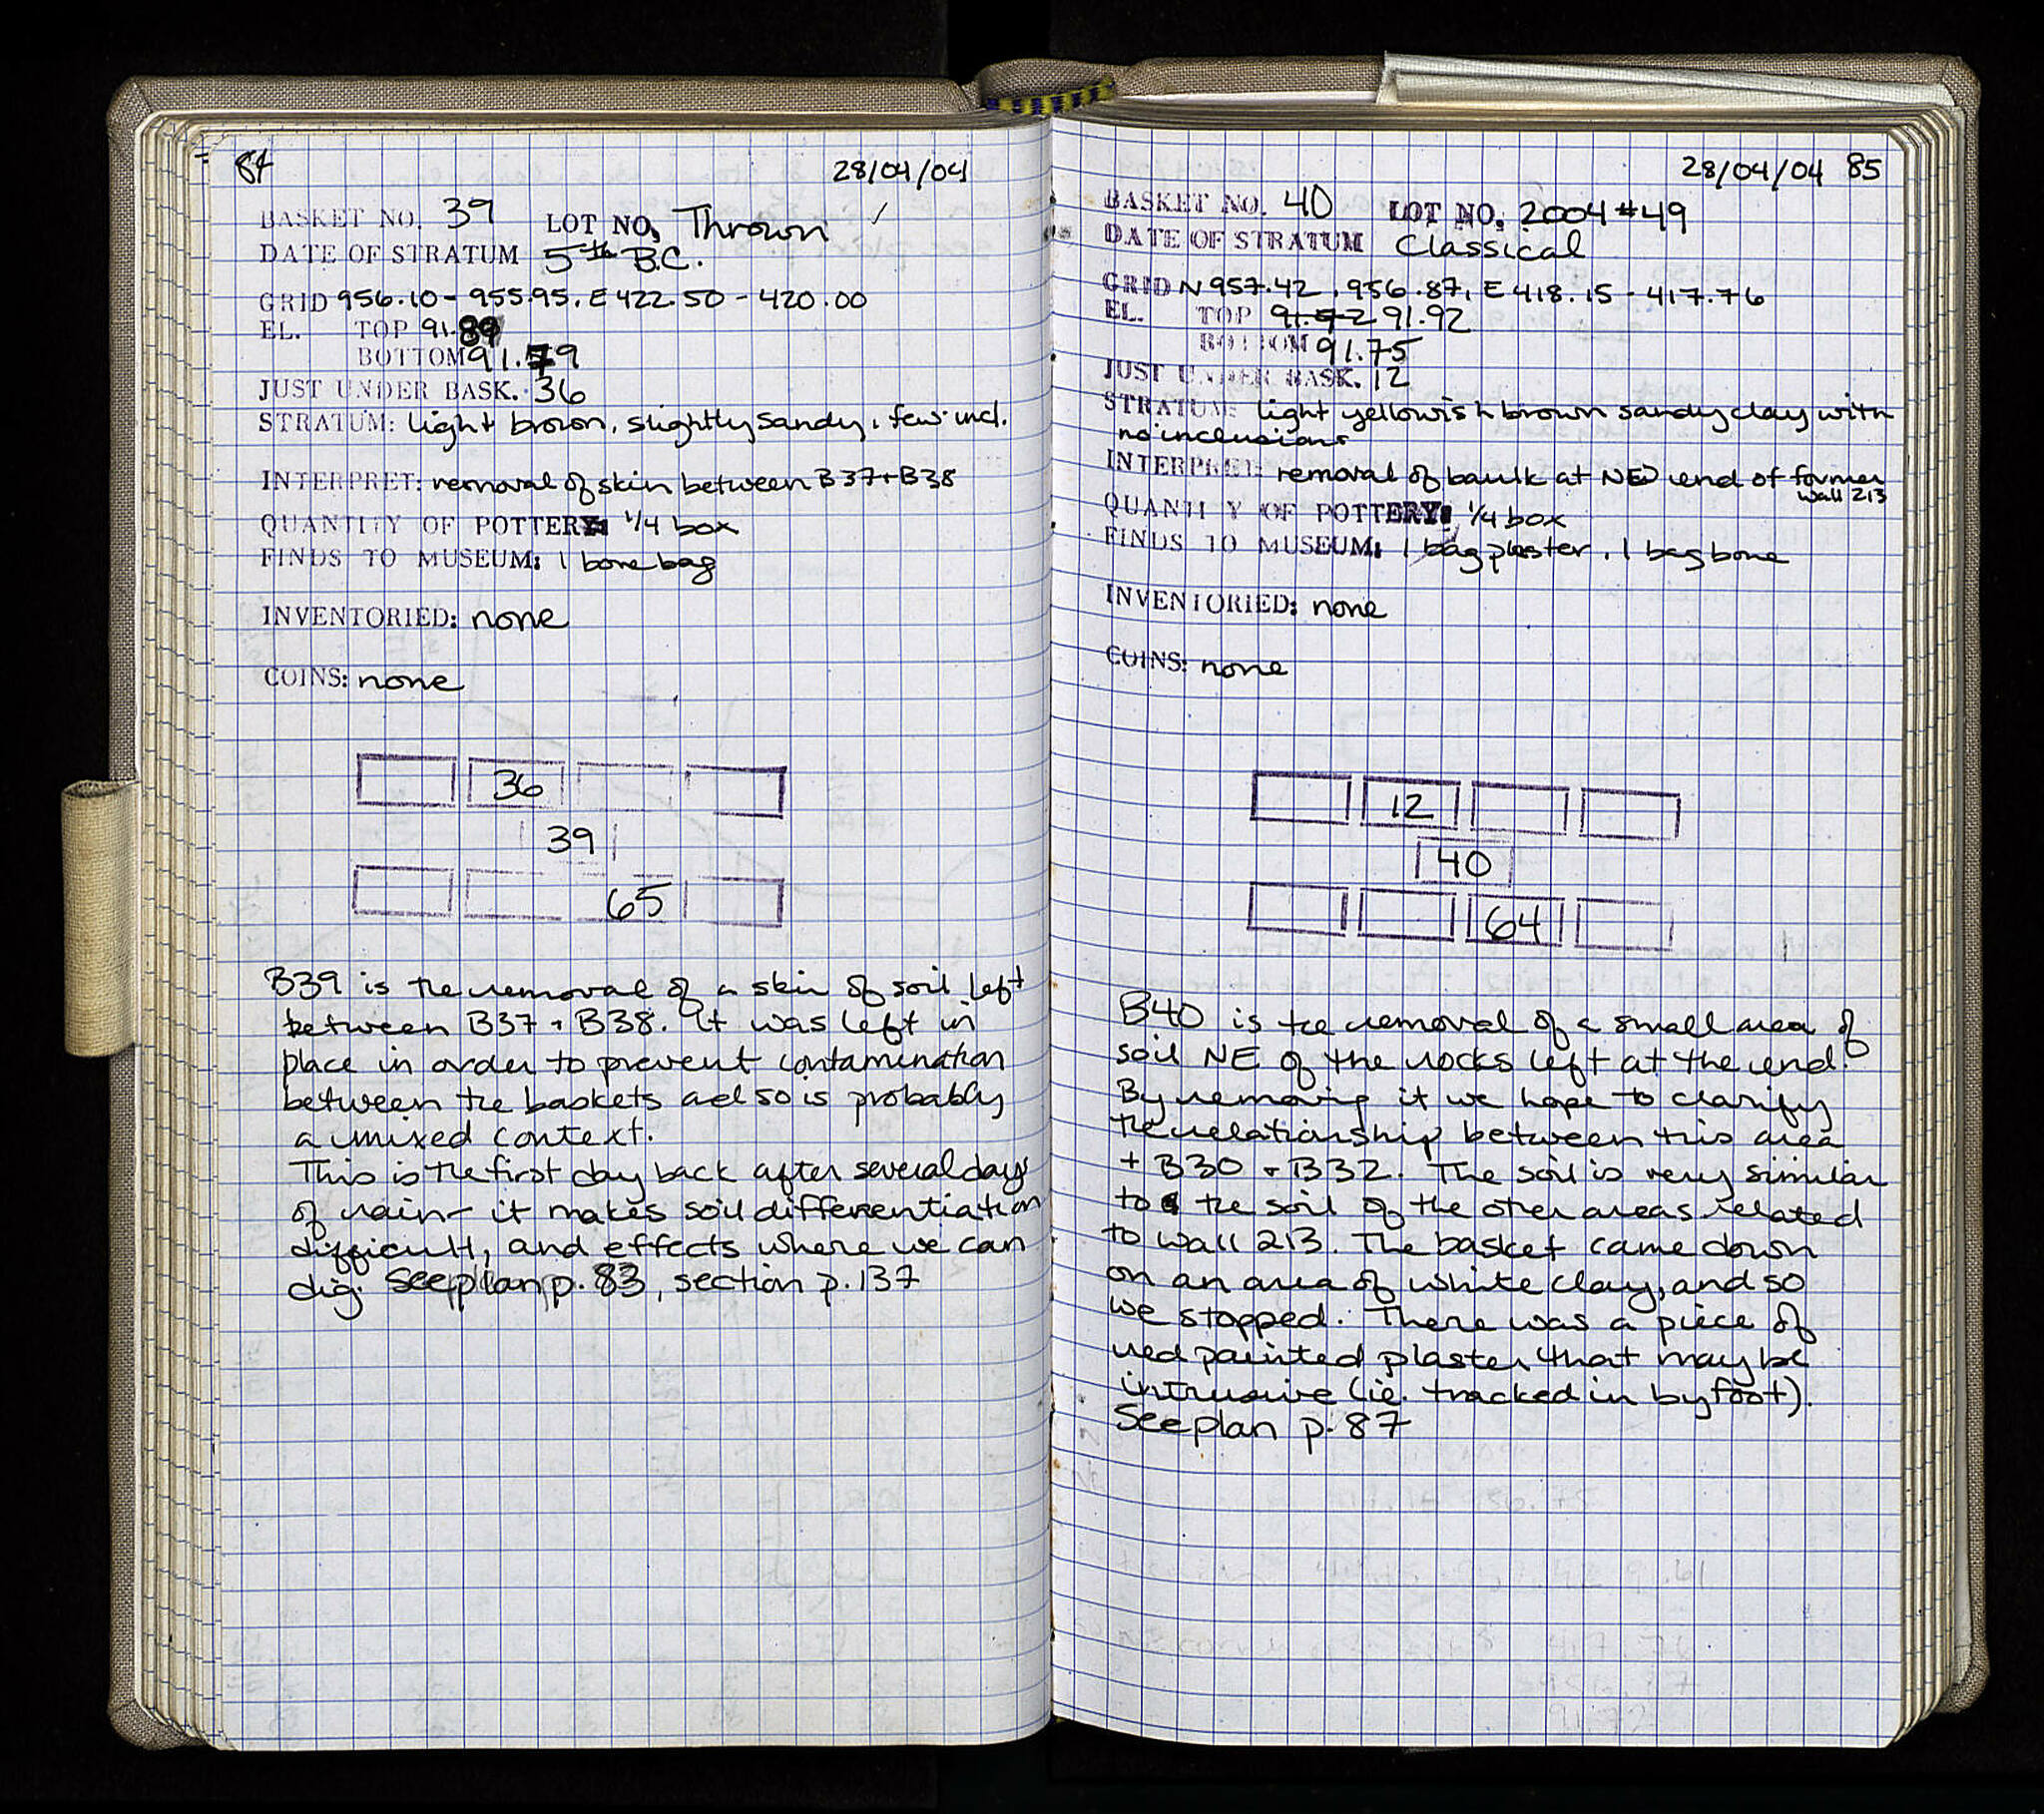 84 28/04/04
BASKET NO. 39 LOT NO. Thrown
DATE OF STRATUM 5th B.C.
GRID 956.10 - 955.95, E 422.50 - 420.00
EL. TOP 91.89
BOTTOM 91.79
JUST UNDER BASK. 36
STRATUM: light brown, slightly sandy, few incl.
INTERPRET: removal of skin between B37 + B38
QUANTITY OF POTTERY: 1/4 box
FINDS TO MUSEUM: 1 bone bag
INVENTORIED: none
COINS: none
36
39
65
B39 is the removal of a skin of soil left
between B37 + B38. It was left in
place in order to prevent contamination
between the baskets and so is probably
a mixed context.
This is the first day back after several days
of rain - it makes soil differentiation
difficult, and effects where we can
dig. See plan p. 83, section p. 137
28/04/04 85
BASKET NO. 40 LOT NO. 2004 #49
DATE OF STRATUM Classical
GRID N 957.42, 956.87, E 418.15 - 417.76
EL. TOP 91.92 91.92
BOTTOM 91.75
JUST UNDER BASK. 12
STRATUM: light yellowish brown sandy clay with
no inclusions
INTERPRET: removal of baulk at NE end of former
wall 213
QUANTITY OF POTTERY: 1/4 box
FINDS TO MUSEUM: 1 bag plaster, 1 bag bone
INVENTORIED: none
COINS: none
12
40
64
B40 is the removal of a small area of
soil NE of the rocks left at the end.
By removing it we hope to clarify
the relationship between this area
+ B30 + B32. The soil is very similar
to the soil of the other areas related
to wall 213. The basket came down
on an area of white clay, and so
we stopped. There was a piece of
red painted plaster that may be
intrusive (ie. tracked in by foot).
See plan p. 87